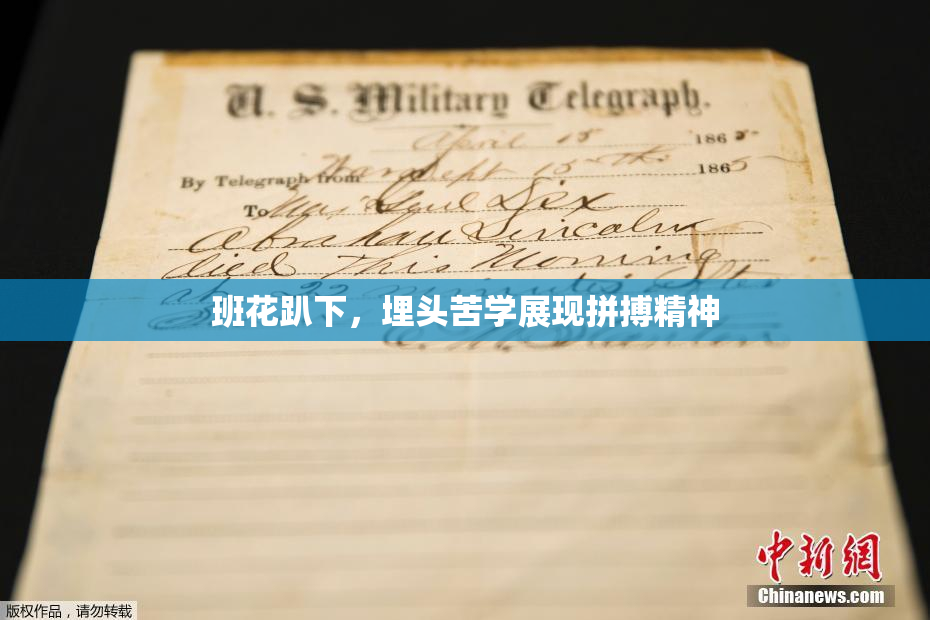 U. S. Military Telegraph.
April 15 1865
By Telegraph from War Dept 15th 1865
To Maj Genl Dix
Abraham Lincoln
died This Morning
at 22 minutes after
班花趴下，埋头苦学展现拼搏精神
E. M. Stanton
中新网
Chinanews.com
版权作品，请勿转载